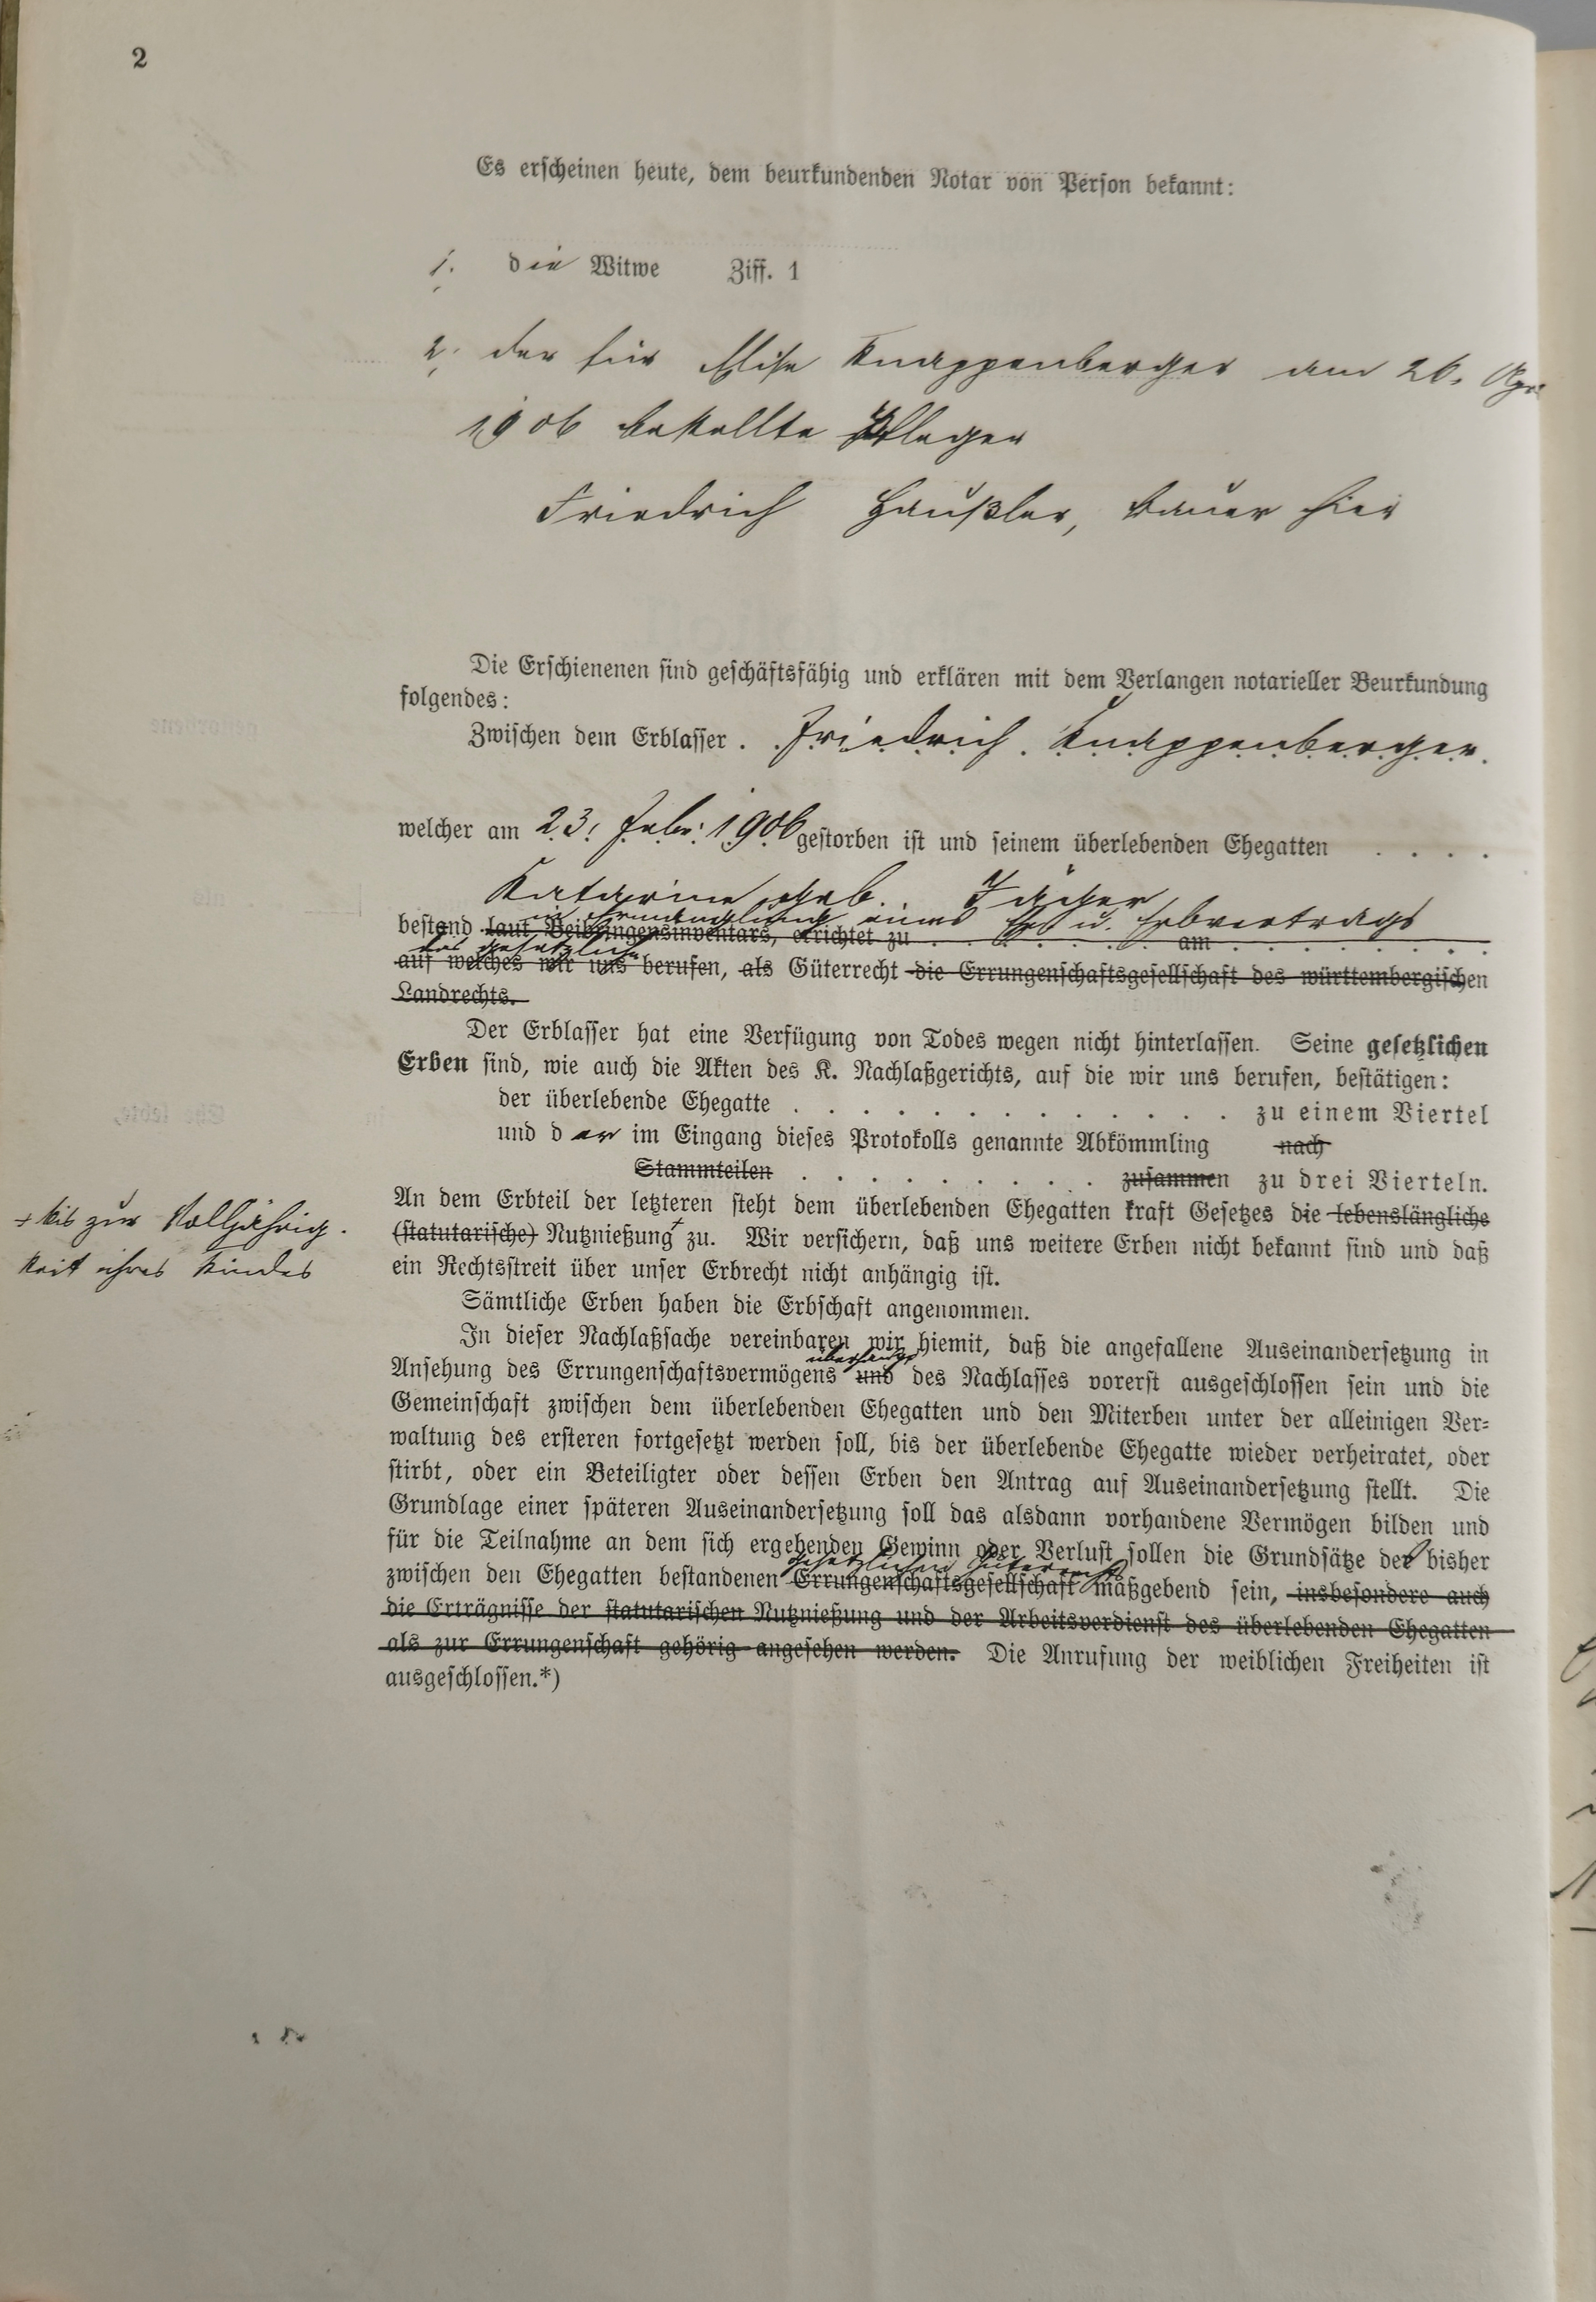 2
Es erscheinen heute, dem beurkundenden Notar von Person bekannt:
1. die Witwe Ziff. 1
2. der für Elise Knappenberger am 26. Apr
1906 bestellte Pfleger
Friedrich Häußler, Bauer hier
Die Erschienenen sind geschäftsfähig und erklären mit dem Verlangen notarieller Beurkundung
folgendes:
Zwischen dem Erblasser Friedrich Knappenberger
welcher am 23. Febr. 1906 gestorben ist und seinem überlebenden Ehegatten
Katarine geb. Jäger
in Ermanglung eines Ehe u. Erbvertrags
bestand laut Beibringensinventars, errichtet zu am
das gesetzliche
auf welches wir uns berufen, als Güterrecht die Errungenschaftsgesellschaft des württembergischen
Landrechts.
Der Erblasser hat eine Verfügung von Todes wegen nicht hinterlassen. Seine gesetzlichen
Erben sind, wie auch die Akten des K. Nachlaßgerichts, auf die wir uns berufen, bestätigen:
der überlebende Ehegatte zu einem Viertel
und der im Eingang dieses Protokolls genannte Abkömmling nach
Stammteilen zusammen zu drei Vierteln.
An dem Erbteil der letzteren steht dem überlebenden Ehegatten kraft Gesetzes die lebenslängliche
+ bis zur Volljährig-
(statutarische) Nutznießung + zu. Wir versichern, daß uns weitere Erben nicht bekannt sind und daß
keit ihres Kindes
ein Rechtsstreit über unser Erbrecht nicht anhängig ist.
Sämtliche Erben haben die Erbschaft angenommen.
In dieser Nachlaßsache vereinbaren wir hiemit, daß die angefallene Auseinandersetzung in
überhaupt
Ansehung des Errungenschaftsvermögens und des Nachlasses vorerst ausgeschlossen sein und die
Gemeinschaft zwischen dem überlebenden Ehegatten und den Miterben unter der alleinigen Ver-
waltung des ersteren fortgesetzt werden soll, bis der überlebende Ehegatte wieder verheiratet, oder
stirbt, oder ein Beteiligter oder dessen Erben den Antrag auf Auseinandersetzung stellt. Die
Grundlage einer späteren Auseinandersetzung soll das alsdann vorhandene Vermögen bilden und
für die Teilnahme an dem sich ergebenden Gewinn oder Verlust sollen die Grundsätze des bisher
gesetzlichen Güterrechts
zwischen den Ehegatten bestandenen Errungenschaftsgesellschaft maßgebend sein, insbesondere auch
die Erträgnisse der statutarischen Nutznießung und der Arbeitsverdienst des überlebenden Ehegatten
als zur Errungenschaft gehörig angesehen werden. Die Anrufung der weiblichen Freiheiten ist
ausgeschlossen.*)